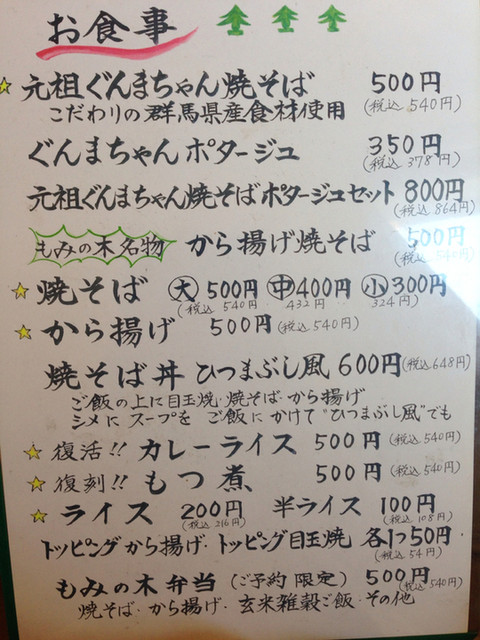 お食事
元祖ぐんまちゃん焼そば 500円
こだわりの群馬県産食材使用 (税込 540円)
ぐんまちゃんポタージュ 350円
(税込 378円)
元祖ぐんまちゃん焼そばポタージュセット 800円
(税込 864円)
もみの木名物 から揚げ焼そば 500円
(税込 540円)
焼そば 大 500円 中 400円 小 300円
(税込 540円 432円 324円)
から揚げ 500円 (税込 540円)
焼そば丼 ひつまぶし風 600円 (税込 648円)
ご飯の上に目玉焼・焼そば・から揚げ
シメにスープをご飯にかけて"ひつまぶし風"でも
復活!! カレーライス 500円 (税込 540円)
復刻!! もつ煮 500円 (税込 540円)
ライス 200円 半ライス 100円
(税込 216円) (税込 108円)
トッピングから揚げ・トッピング目玉焼 各1つ50円
(税込 54円)
もみの木弁当 (ご予約限定) 500円
(税込 540円)
焼そば・から揚げ・玄米雑穀ご飯・その他